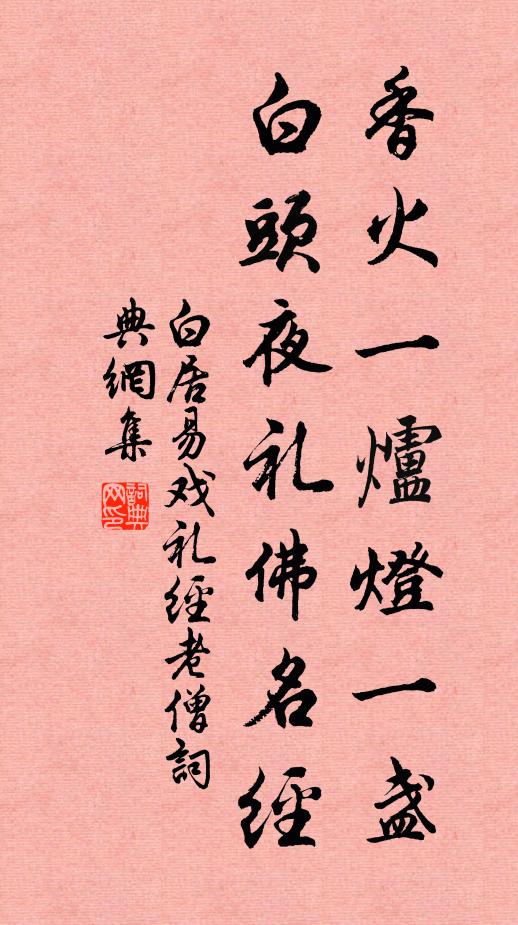 香火一爐燈一盏
白頭夜礼佛名經
白居易戏礼經老僧詞
典網集
詞典网印